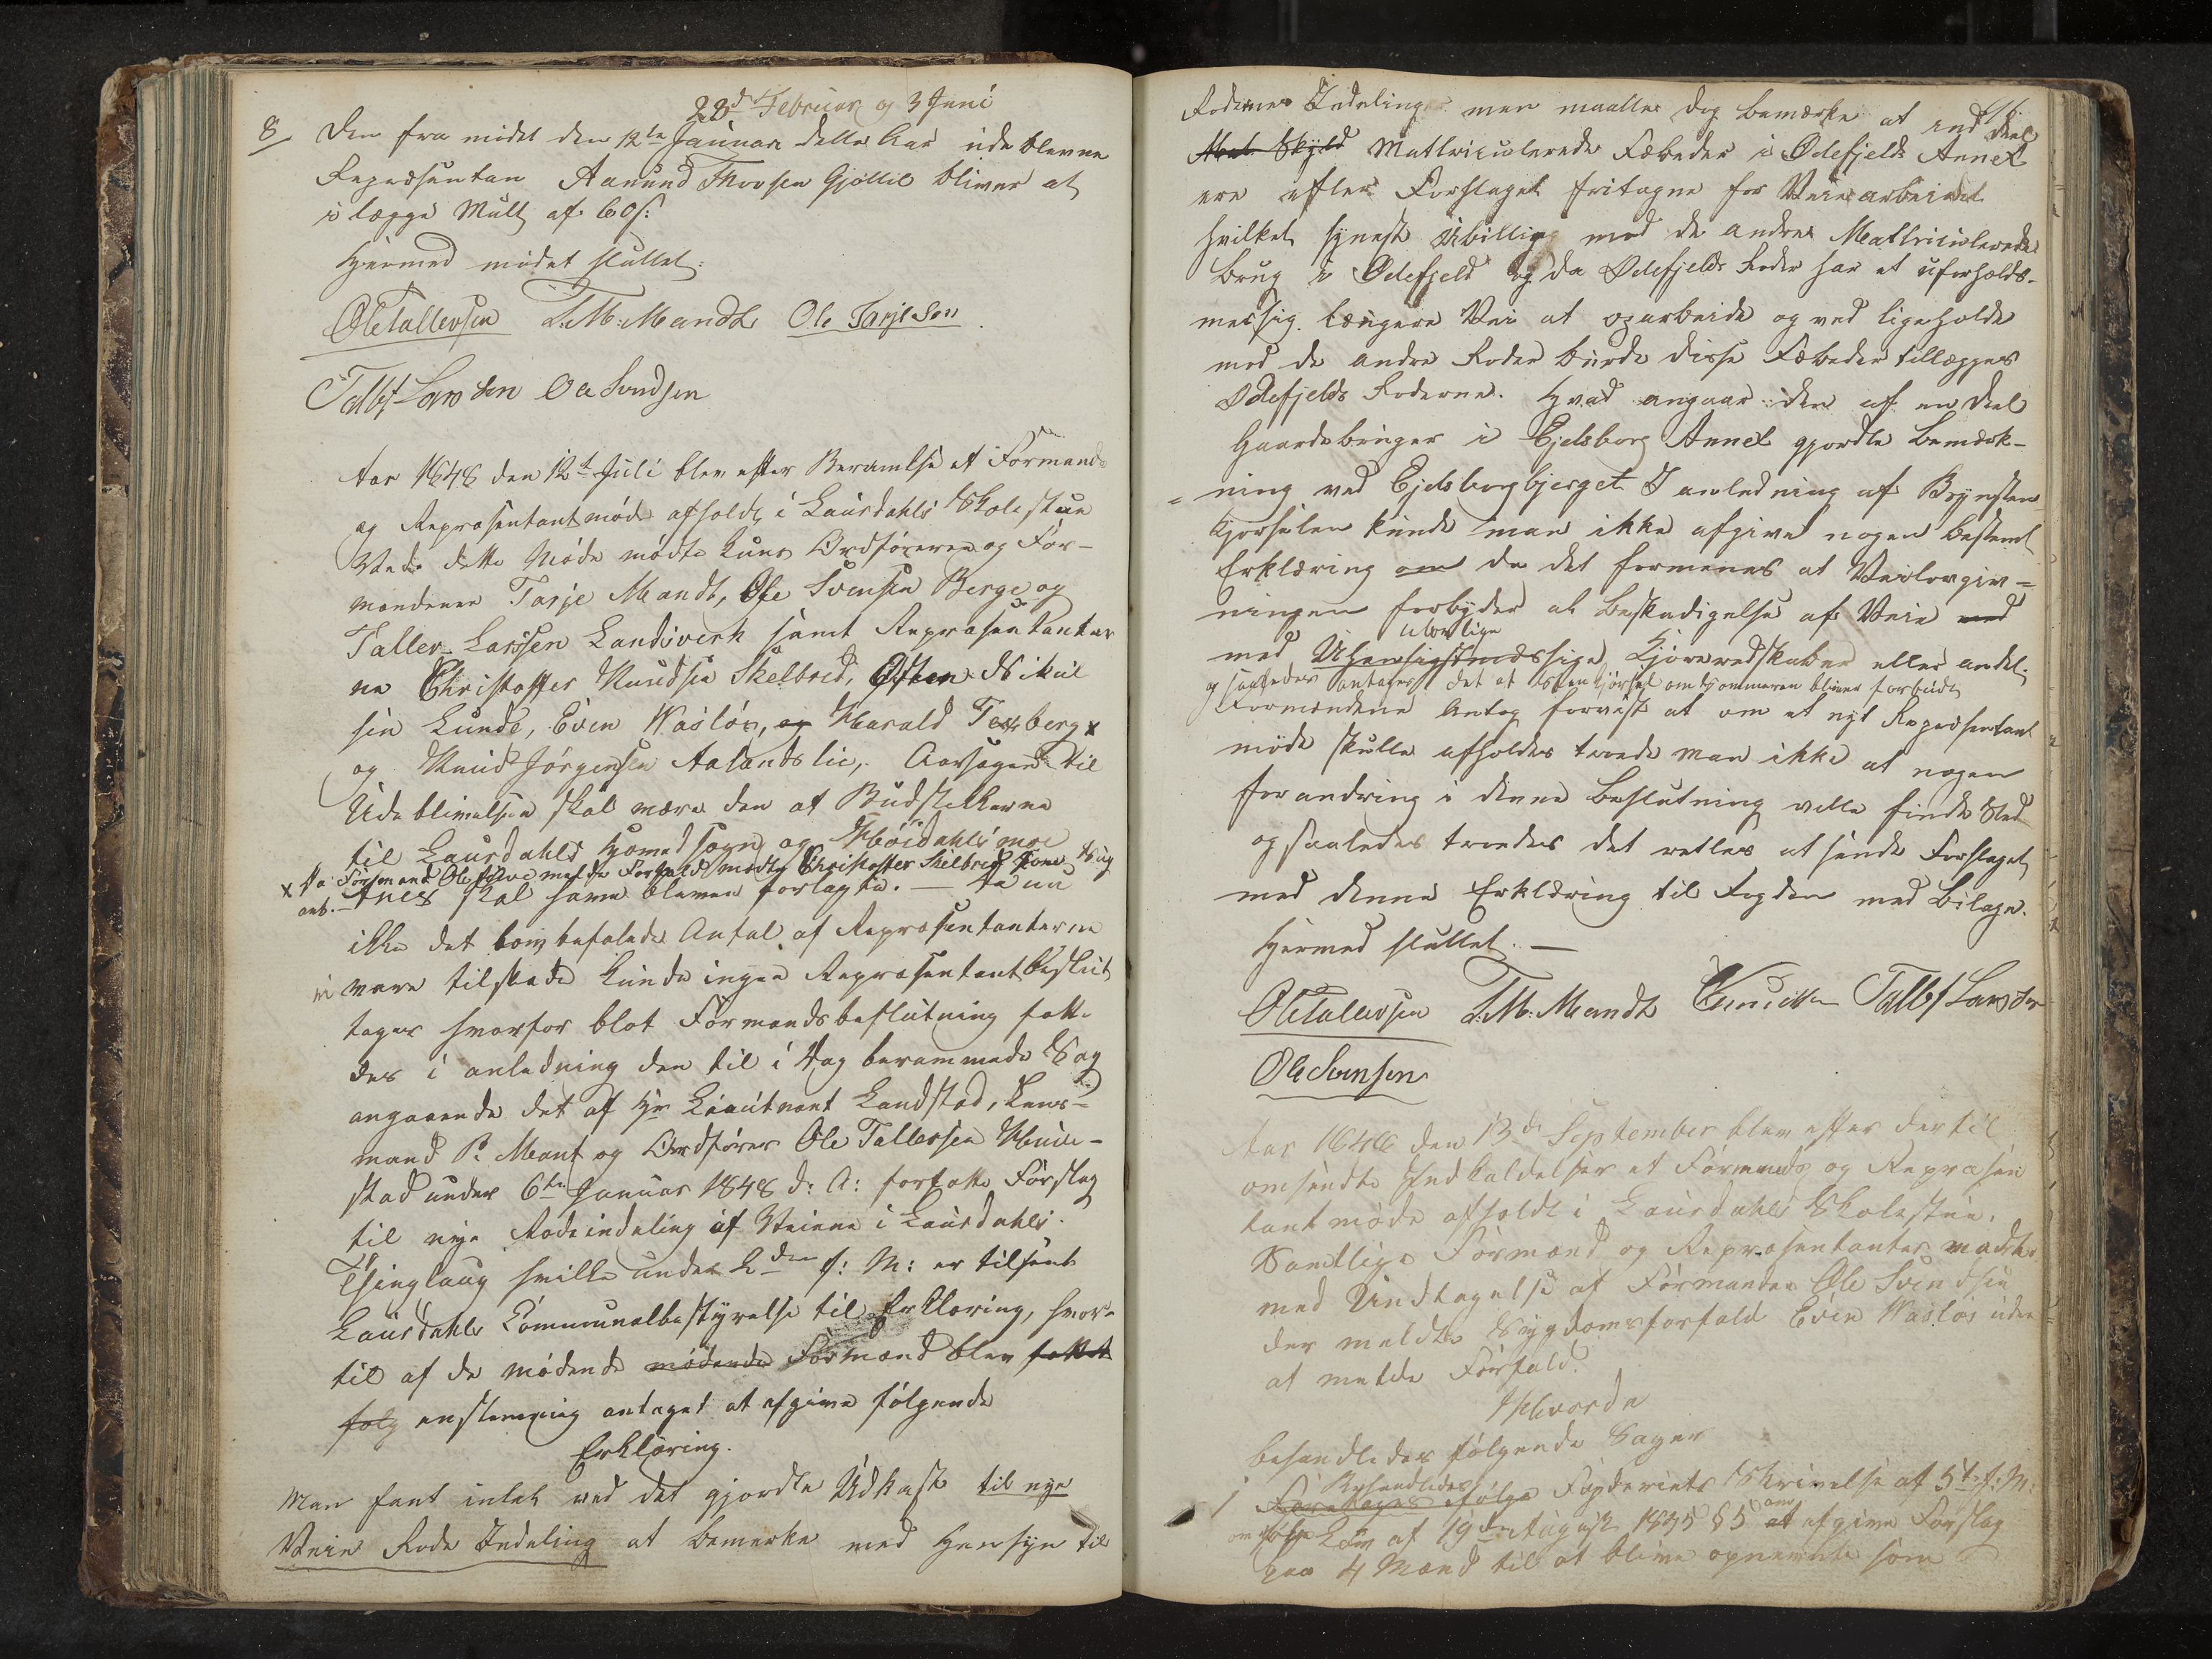 28d Februar og 3 Juni
8/ Den fra mødet den 12te Januar dette Aar udeblevne
Repræsentan Aanund Thorsen Gjøttil bliver at
ilægge Mult af 60 s:
Hermed mødet sluttet:
Ole Tallevsen T. M: Mandt Ole Tarjeson
Tallef Larsson Ole Svndsen
Aar 1848 den 12t Juli blev efter Beramelse et Formands
og Repræsentantmøde afholdt i Laurdahls Skolestue
Ved dette Møde mødte kuns Ordføreren og For-
mændene Tarje Mandt, Ole Svensen Berge og
Tallev Larssen Landsverk samt Repræsentanter
ne Christoffer Knudsen Skelbred, Østen
sen Lunde, Even Vasløs, og Harald Teberg x
og Knud Jørgensen Aalandslie, Aarsagen til
Udeblivelsen skal være den at Budstikkerne
til Laurdahls Hovedsogn og Høidahlsmoe
x Da Formand Ole meldte Forfald mødte Christoffer Skelbred som
Anex skal have blevet forlagte. — Da nu
ikke det lovbefalede Antal af Repræsentanterne
være tilstæde kunde ingen Repræsentantbeslut
tages hvorfor blot Formandsbeslutning fatte-
des i anledning den til i Dag berammede Sag
angaaende det af Hr Lieutnant Landstad, Lens-
mand P. Mant og Ordfører Ole Tallevsen Huve-
stad under 6te Januar 1848 d: A: forfatte Forslag
til nye Rodeindeling af Veiene i Laurdahls
Thinglaug hvilke under 2den f: M: er tilsendt
Laurdahls Communalbestyrelse til Erklæring, hvor-
til af de mødende mødende Formænd blev fattet
følg enstemmig antaget at afgive følgende
Erklæring.
Man fant intet ved det gjordte Udkast til nye
Veie Rode Indeling at bemerke med Hensyn til
Rodernes Indeling men maatte dog bemærke at end deel
Mat. Skyld Mattriculerede Fæbeder i Ødefjelds Annex
ere efter Forslaget fritagne for Veiearbeidet
hvilket synest Ubillig mod de andre Mattriculerede
Brug i Ødefjeld og da Ødefjelds Roder har et uforholds-
messig længere Vei at oparbeide og ved ligeholde
mod de andre Roder burde disse Fæbeder tillægges
Ødefjelds Roderne. Hvad angaar den af en deel
Gaardebruger i Ejdsborg Annex gjordte Bemærk-
ning ved Ejdsborgbjerget I anledning af Brynsten
kjørselen kunde man ikke afgive nogen bestemt
Erklæring om da det formenes at Veilovgiv-
ningen forbyder at beskadigelse af Veie med
ulovlige
med Uhensigtsmæssige Kjøreredskaber eller andet.
og saaledes antages det at Stenkjørsel om Sommeren bliver forbudt
Formændene Antog forvist at om et nyt Repræsentant
møde skulle afholdes troede man ikke at nogen
forandring i denne Beslutning ville finde Sted
og saaledes troedes det rettes at sende Forslaget
med denne Erklæring til Fogden med Bilage.
Hermed sluttet. —
Ole Tallevsen T. M: Mandt Tallef Larsson
Ole Svensen
Aar 1848 den 13de September blev efter dertil
omsendte Indkaldelser et Formands og Repræsen
tantmøde afholdt i Laurdahls Skolestue.
Samtlige Formænd og Repræsentanter mødte
med Undtagelse af Formanden Ole Svendsen
der meldte Sygdomsforfald Even Vasløs uden
at melde Forfald.
Hvorda
behandledes følgende Sager
Behandledes
1 Foretages ifølge Fogderiets Skrivelse af 5te f: M:
om
om ifølge Lov af 19de August 1845 § 5 at afgive Forslag
paa 4 Mænd til at blive opnevnte som